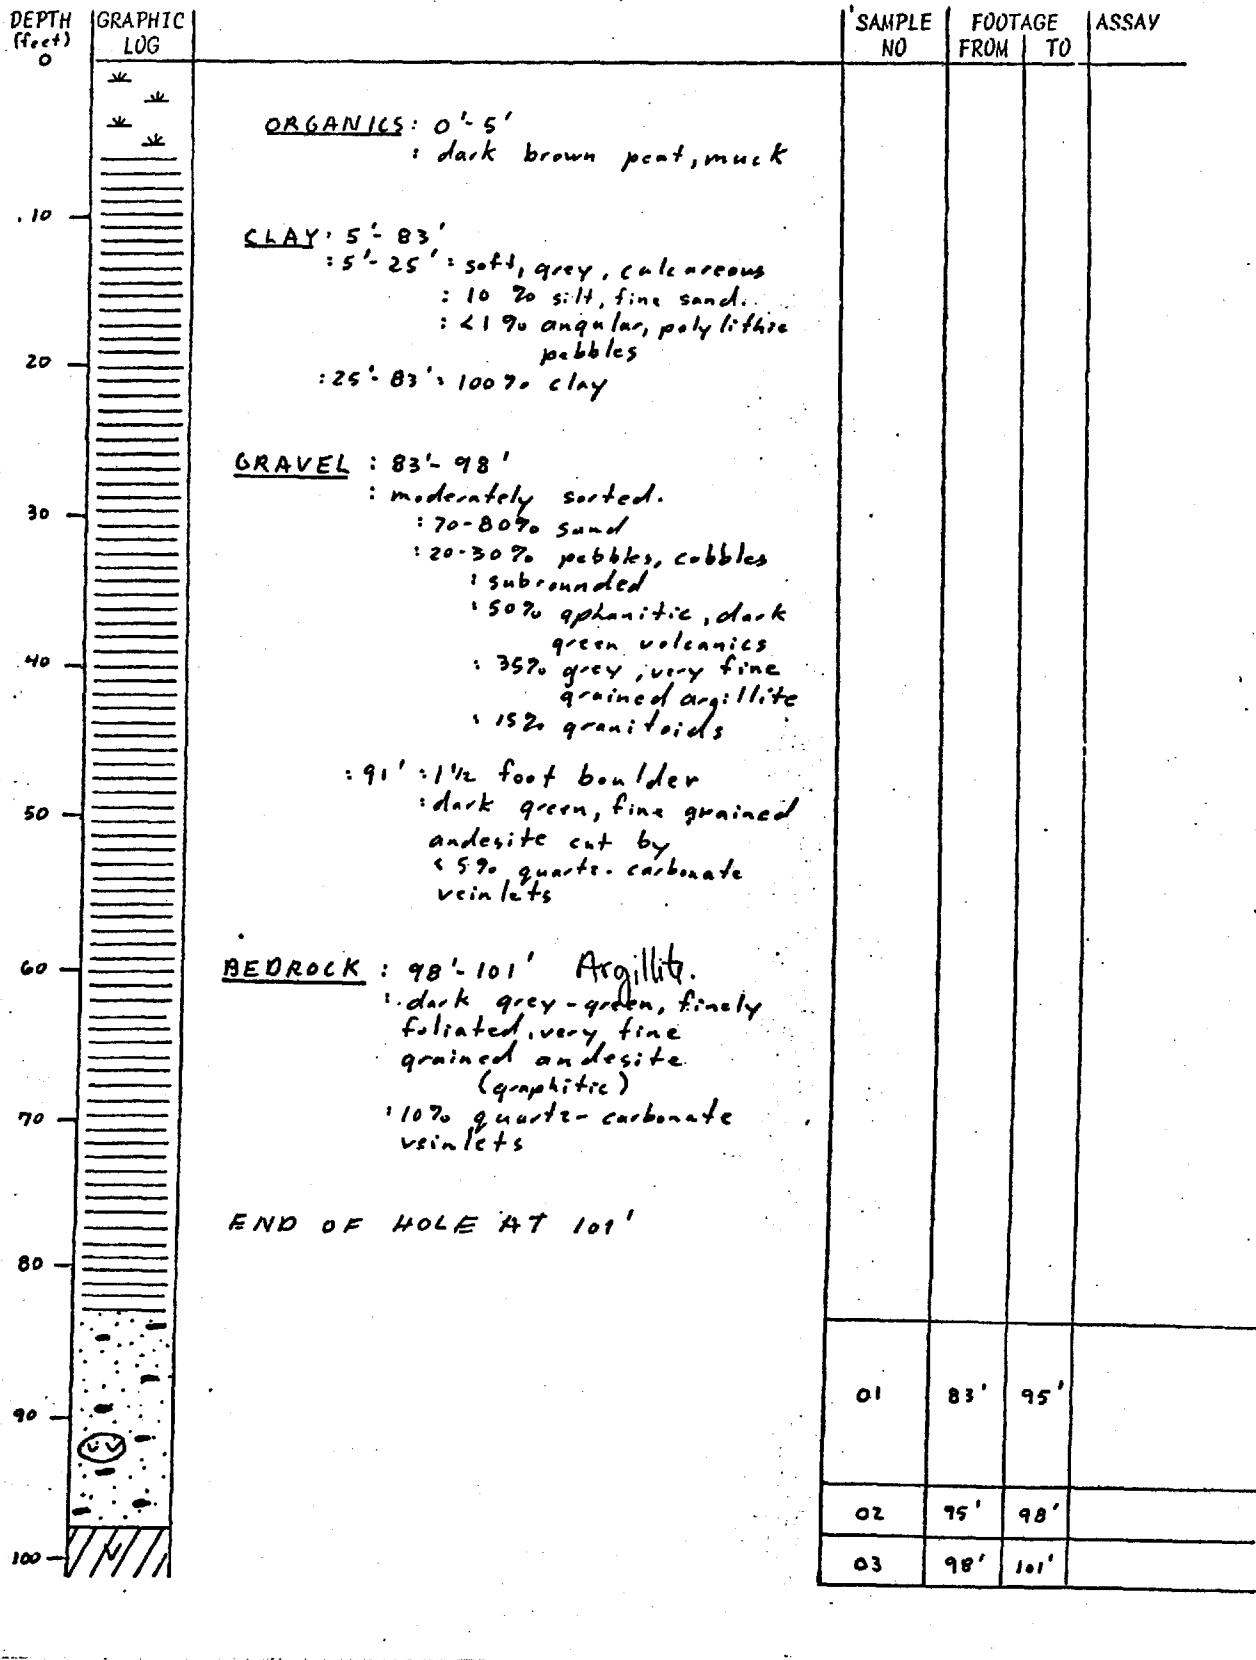 DEPTH (feet) GRAPHIC LOG SAMPLE NO FOOTAGE FROM TO ASSAY
0
ORGANICS: 0'-5'
: dark brown peat, muck
10
CLAY: 5'-83'
: 5'-25' : soft, grey, calcareous
: 10 % silt, fine sand.
: <1 % angular, polylithic
pebbles
20
: 25'-83' : 100% clay
GRAVEL : 83'-98'
: moderately sorted.
30
: 70-80% sand
: 20-30% pebbles, cobbles
: subrounded
: 50% aphanitic, dark
green volcanics
40
: 35% grey, very fine
grained argillite
: 15% granitoids
: 91' : 1 1/2 foot boulder
50
: dark green, fine grained
andesite cut by
< 5% quartz-carbonate
veinlets
60
BEDROCK : 98'-101' Argillite.
: dark grey-green, finely
foliated, very fine
grained andesite
(graphitic)
70
: 10% quartz-carbonate
veinlets
END OF HOLE AT 101'
80
01 83' 95'
90
02 95' 98'
100
03 98' 101'